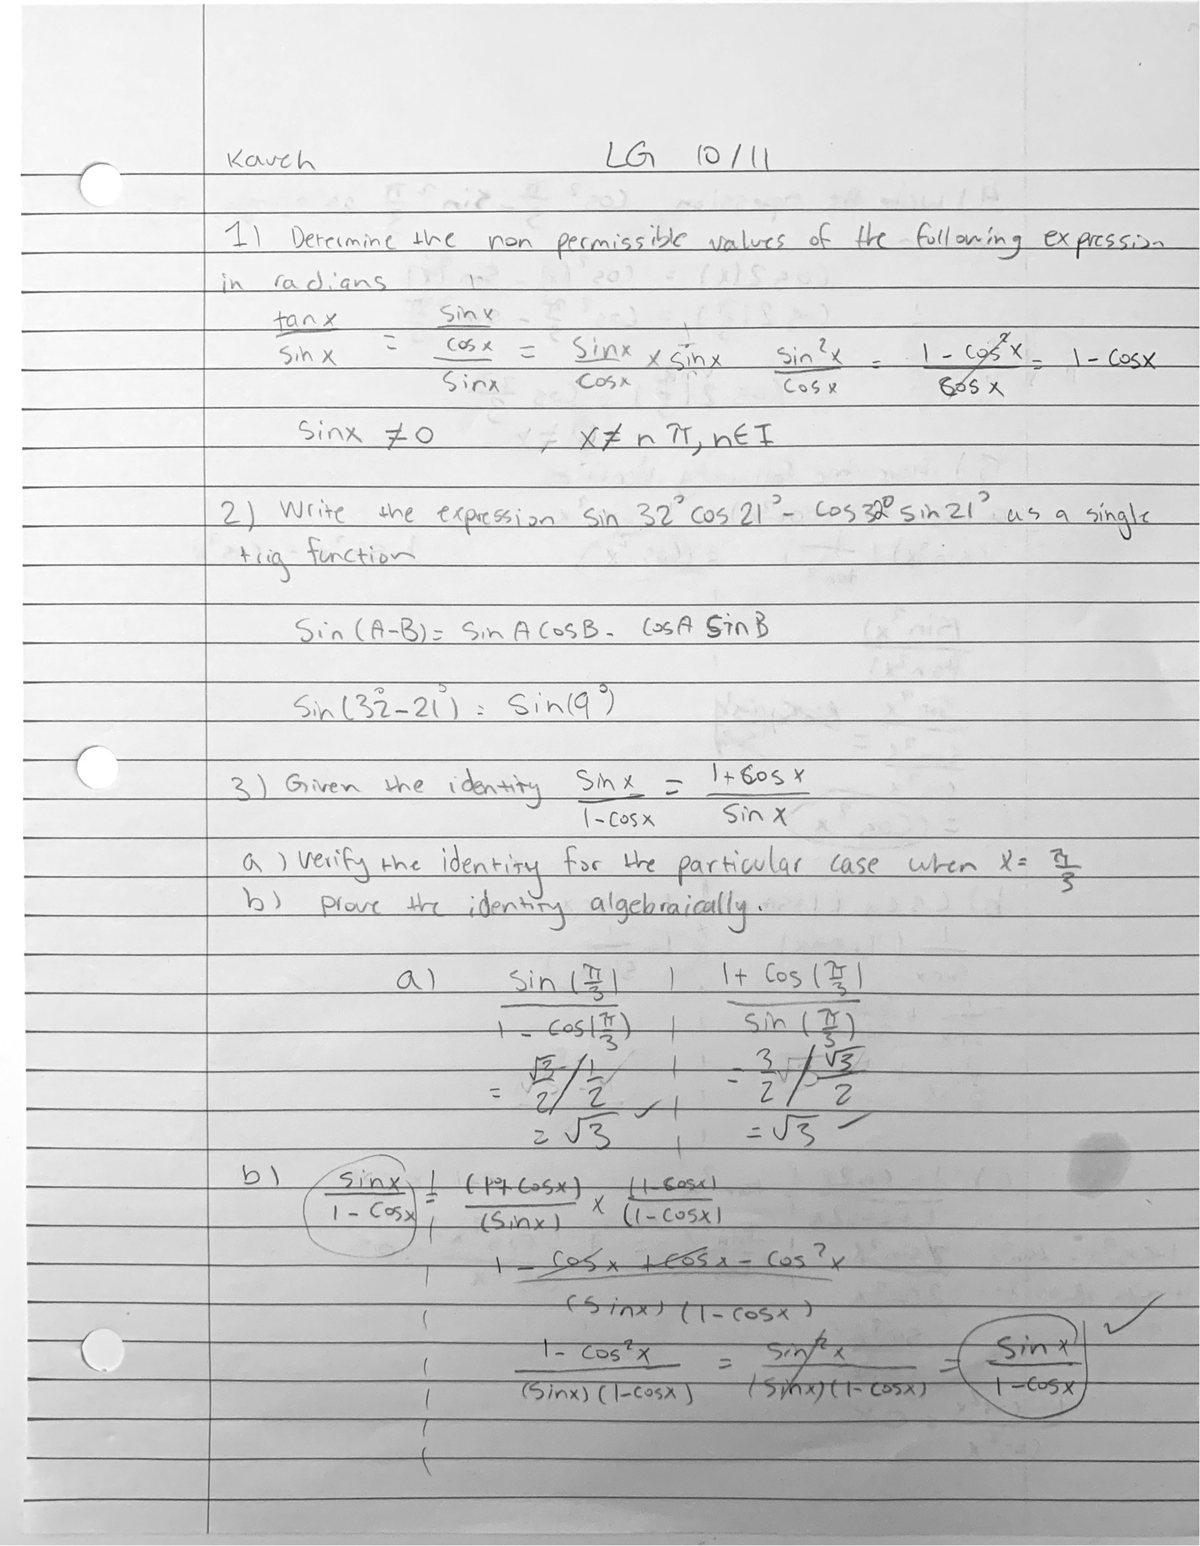 Kaveh LG 10/11
1) Determine the non permissible values of the following expression
in radians
tanx/sinx = (sinx/cosx)/sinx = sinx/cosx × sinx sin²x/cosx = 1-cos²x/cosx = 1-cosx
sinx ≠ 0 x ≠ nπ, n∈I
2) Write the expression sin 32° cos 21° - cos 32° sin 21° as a single
trig function
Sin (A-B) = Sin A cos B - cos A Sin B
Sin (32°-21°) = Sin(9°)
3) Given the identity sinx/1-cosx = 1+cosx/sinx
a) verify the identity for the particular case when x = π/3
b) prove the identity algebraically.
a) sin(π/3)/1-cos(π/3) | 1+cos(π/3)/sin(π/3)
= √3/2 / 1/2 | = 3/2 / √3/2
= √3 ✓ | = √3 ✓
b) sinx/1-cosx = (1+cosx)/(sinx) × (1-cosx)/(1-cosx)
1-cosx+cosx-cos²x/(sinx)(1-cosx)
1-cos²x/(sinx)(1-cosx) = sin²x/(sinx)(1-cosx) = sinx/1-cosx ✓